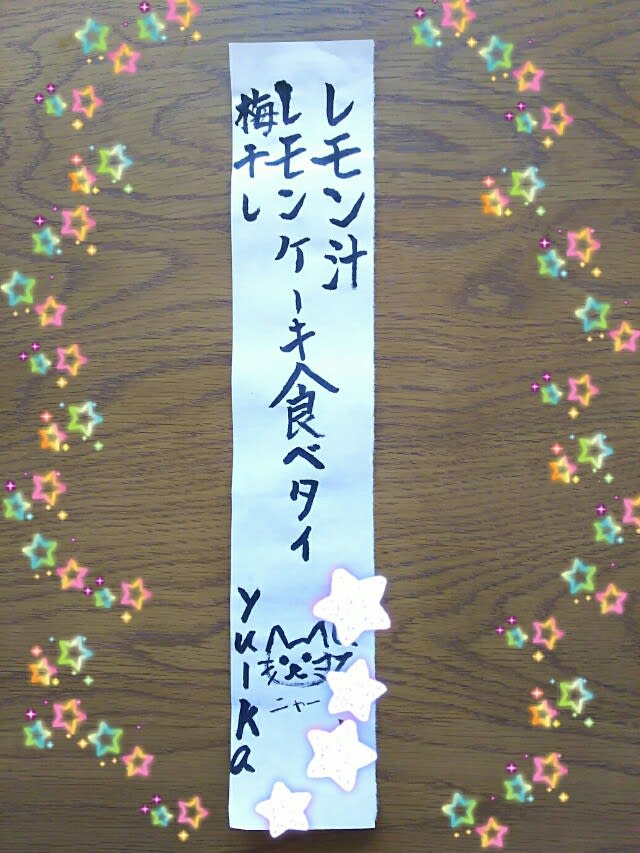 レモン汁
レモンケーキ食ベタイ
梅干し
yuika
ニャー